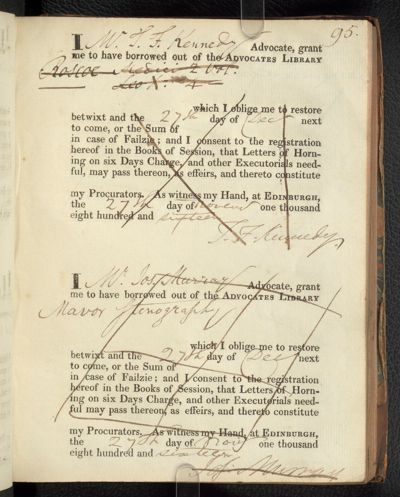 95.
I Mr. T. F. Kennedy Advocate, grant
me to have borrowed out of the ADVOCATES LIBRARY
Roscoe Medici 2 Vol.
which I oblige me to restore
betwixt and the 27th day of Decr next
to come, or the Sum of
in case of Failzie; and I consent to the registration
hereof in the Books of Session, that Letters of Horn-
ing on six Days Charge, and other Executorials need-
ful, may pass thereon, as effeirs, and thereto constitute
my Procurators. As witness my Hand, at EDINBURGH,
the 27th day of Novem one thousand
eight hundred and sixteen
T. F. Kennedy
I Mr. Jos. Murray Advocate, grant
me to have borrowed out of the ADVOCATES LIBRARY
Mavor Stenography
which I oblige me to restore
betwixt and the 27th day of Decr next
to come, or the Sum of
in case of Failzie; and I consent to the registration
hereof in the Books of Session, that Letters of Horn-
ing on six Days Charge, and other Executorials need-
ful may pass thereon, as effeirs, and thereto constitute
my Procurators. As witness my Hand, at EDINBURGH,
the 27th day of Novr one thousand
eight hundred and sixteen
Murray